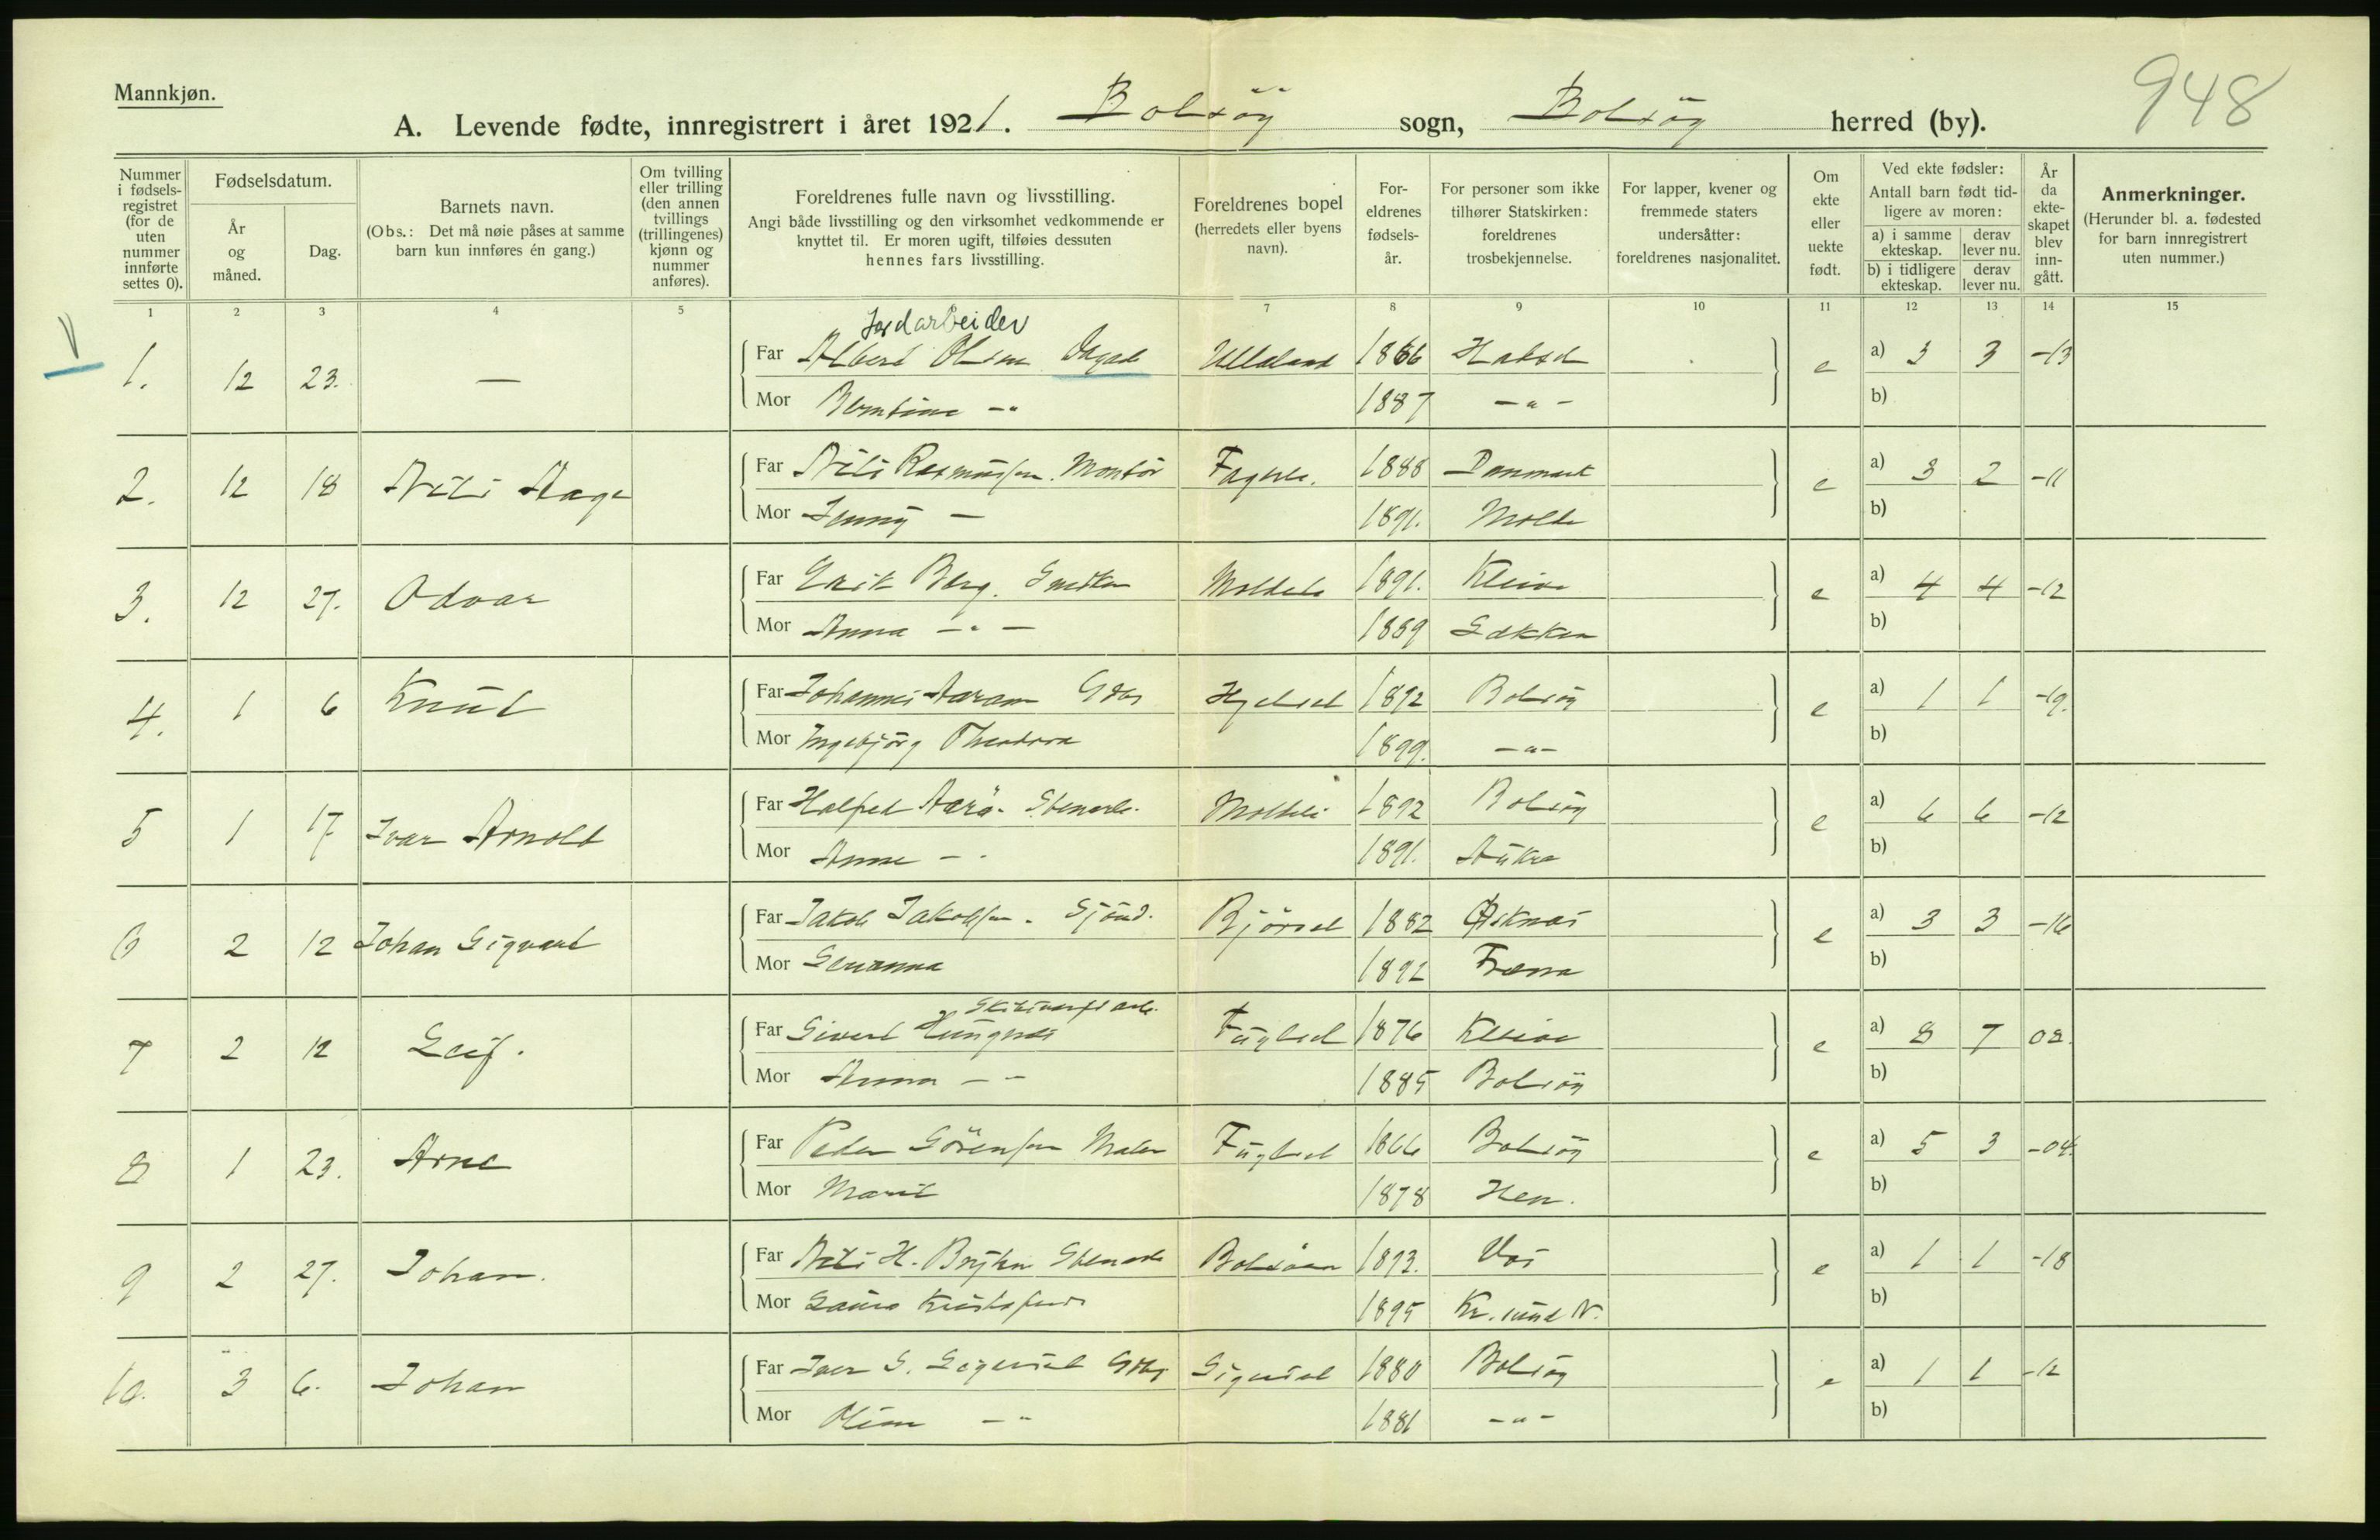 Mannkjøn.
948
A. Levende fødte, innregistrert i året 1921. Bolsöy sogn, Bolsöy herred (by).
Nummer i fødsels-registret (for de uten nummer innførte settes 0).
Fødselsdatum.
År og måned.
Dag.
Barnets navn.
(Obs.: Det må nøie påses at samme barn kun innføres én gang.)
Om tvilling eller trilling (den annen tvillings (trillingenes) kjønn og nummer anføres).
Foreldrenes fulle navn og livsstilling.
Angi både livsstilling og den virksomhet vedkommende er knyttet til. Er moren ugift, tilføies dessuten hennes fars livsstilling.
Foreldrenes bopel (herredets eller byens navn).
For-eldrenes fødsels-år.
For personer som ikke tilhører Statskirken: foreldrenes trosbekjennelse.
For lapper, kvener og fremmede staters undersåtter: foreldrenes nasjonalitet.
Om ekte eller uekte født.
Ved ekte fødsler:
Antall barn født tid-ligere av moren:
a) i samme ekteskap.
derav lever nu.
b) i tidligere ekteskap.
derav lever nu.
År da ekte-skapet blev inn-gått.
Anmerkninger.
(Herunder bl. a. fødested for barn innregistrert uten nummer.)
1 2 3 4 5 7 8 9 10 11 12 13 14 15
Jordarbeider
1. 12 23. — Far Albert Olsen 1866 e a) 3 3 -13
Mor 1887 -"- b)
2. 12 18 Nils Aage Far Nils Rasmussen. Montör 1888 Danmark e a) 3 2 -11
Mor Jenny — 1891. Molde b)
3. 12 27. Odvar Far Erik Berg. 1891. Kleive e a) 4 4 -12
Mor Anna -"- 1889 b)
4. 1 6 Knut Far Johannes Aaram Gbr 1892 Bolsöy e a) 1 1 -19.
Mor Ingebjörg Theodora 1899. -"- b)
5 1 17 Ivar Arnold Far 1892 Bolsöy e a) 6 6 -12
Mor Anne -"- 1891. Aukra b)
6 2 12 Johan Sigvart Far Jakob Jakobsen. 1882 e a) 3 3 -16
Mor 1892 Fræna b)
7 2 12 Leif. Far Sivert 1876 Kleive e a) 8 7 02.
Mor Anna -"- 1885 Bolsöy b)
8 1 23. Arne Far Peder Sörensen Maler Fuglset 1866 Bolsöy e a) 5 3 -04.
Mor Marit 1878 Hen. b)
9 2 27. Johan. Far Nils H. 1893. Vos e a) 1 1 -18
Mor 1895 Kr.sund N. b)
10. 3 6. Johan Far 1880 Bolsöy e a) 1 1 -12
Mor 1881 -"- b)